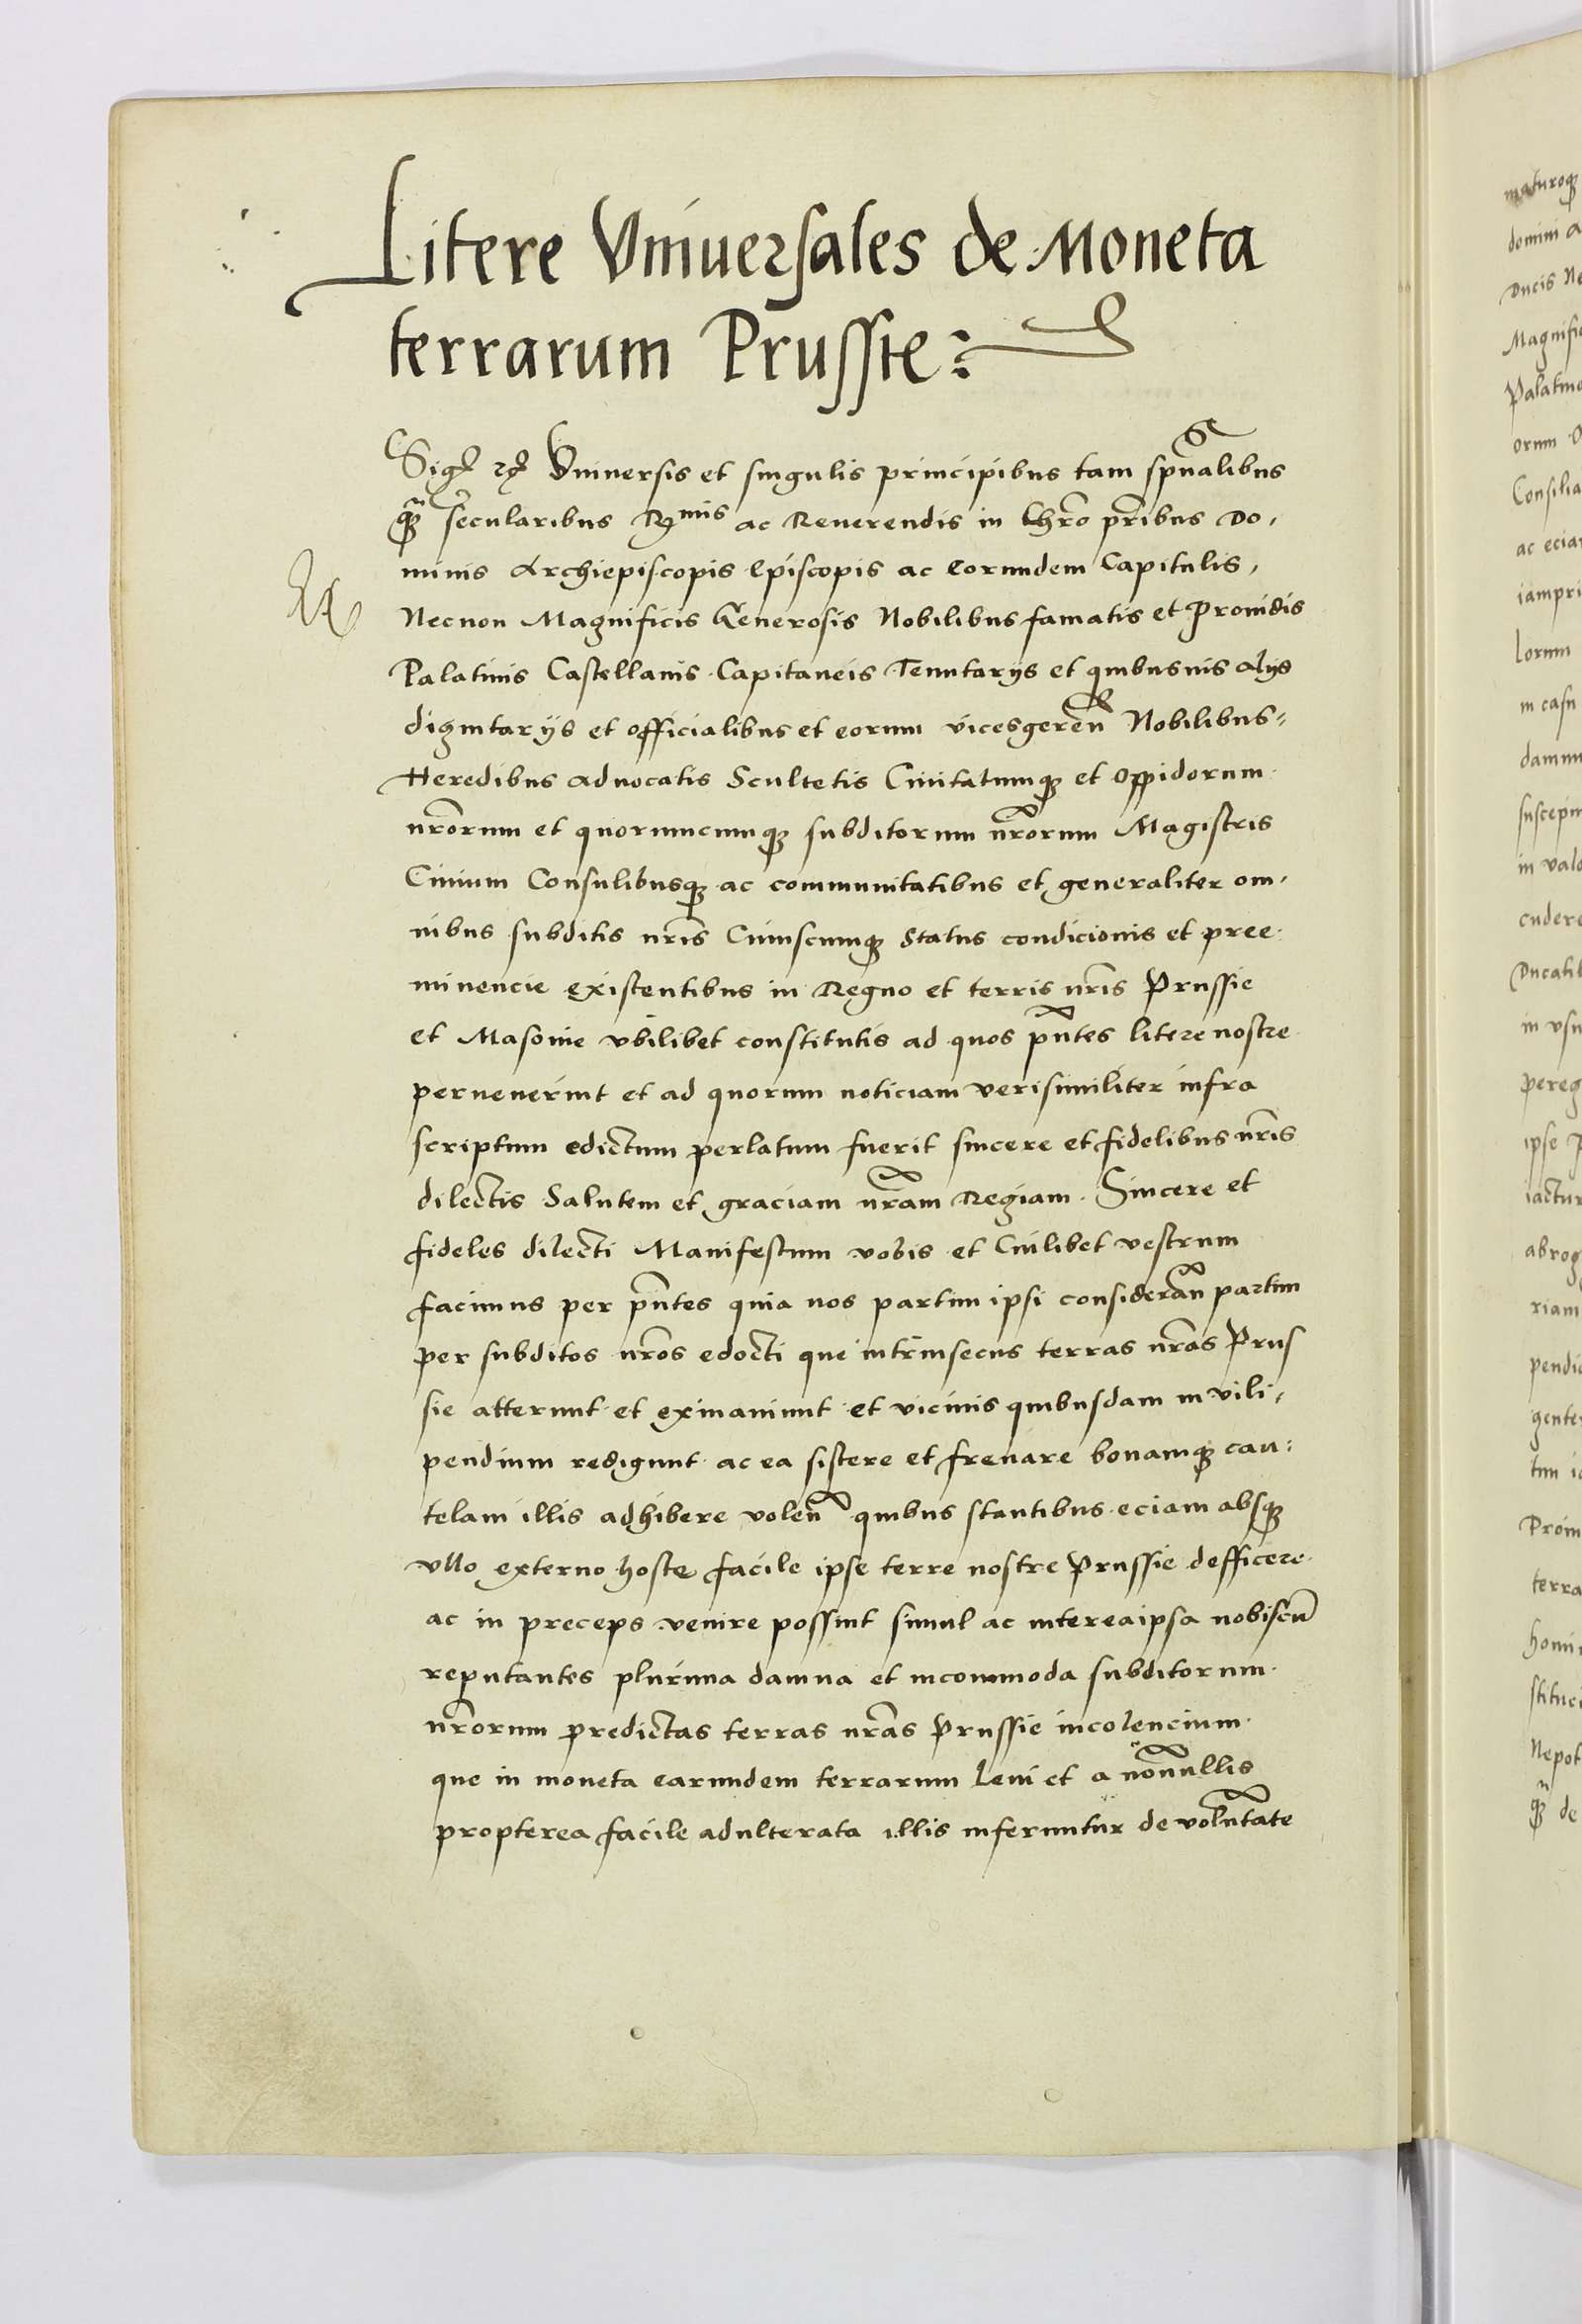 Litere Vniuersales de Moneta
terrarum Prussie:
Sig᷒ rꝫ Vniuersis et singulis principibus tam spũalibus
q̃ꝫ secularibus Rmis ac Reuerendis in Chr̃o pr̃ibus Do,
minis Archiepiscopis Episcopis ac Eorundem Capitulis,
Necnon Magnificis Generosis Nobilibus famatis et Prouidis
Palatinis Castellanis Capitaneis Tenutarijs et quibusuis Alijs
dignitarijs et officialibus et eorum vicesgereñ Nobilibus
Heredibus aduocatis Scultetis Ciuitatumqꝫ et Oppidorum
nr̃orum et quorumcumqꝫ subditorum nr̃orum Magistris
Ciuium Consulibusqꝫ ac communitatibus et generaliter om,
nibus subditis nr̃is Cuiuscumqꝫ Status condicionis et pree
minencie existentibus in Regno et terris nr̃is Prussie
et Masouie vbilibet constitutis ad quos pñtes litere nostre
peruenerint et ad quorum noticiam verisimiliter infra
scriptum edictum perlatum fuerit sincere et fidelibus nr̃is
dilectis Salutem et graciam nr̃am Regiam. Sincere et
fideles dilecti Manifestum vobis et Cuilibet vestrum
facimus per pñtes quia nos partim ipsi consideran̄ partim
per subditos nr̃os edocti que intrinsecus terras nr̃as Prus
sie atterunt et exinaniunt et vicinis quibusdam in vili,
pendium redigunt ac ea sistere et frenare bonamqꝫ cau:
telam illis adhibere voleñ quibus stantibus eciam absqꝫ
vllo externo hoste facile ipse terre nostre Prussie defficere
ac in preceps venire possint simul ac interea ipsa nobiscũ
reputantes plurima damna et incommoda subditorum
nr̃orum predictas terras nr̃as Prussie incolencium
que in moneta earundem terrarum Leui et a nonnullis
propterea facile adulterata illis inferuntur de voluntate
maturoqꝫ
domini a
Ducis Ne
Magnific
Palatino
orum O
Consilia
ac eciam
iampri
lorum
in casu
damn
suscepim
in valo
cudere
Ducatib
in vsu
pereg
ipse P
iactur
abrog
riam
pendic
gente
tim ic
Prom
terra
homi
stituci
Nepot
q̃ꝫ de